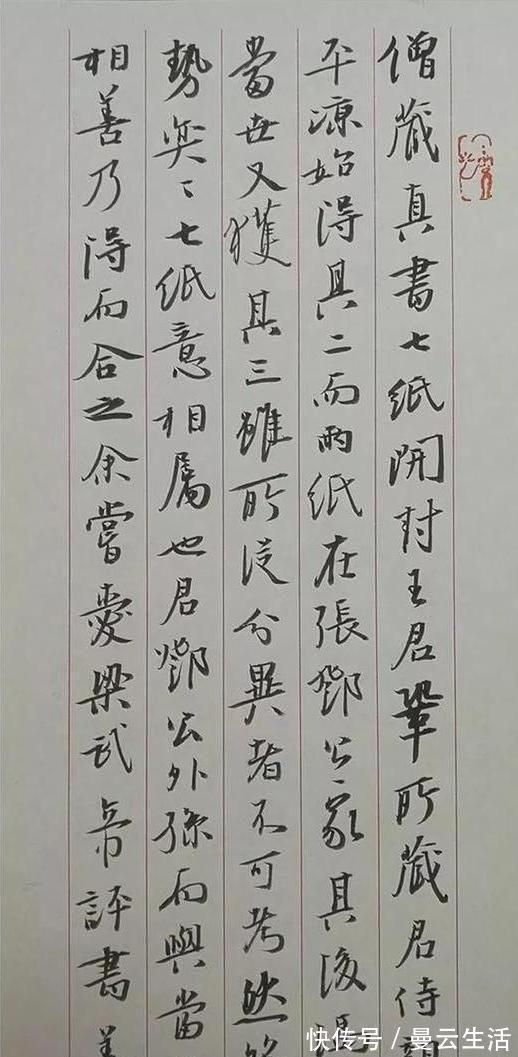 僧藏真書七紙開封王君鞏所藏君侍
平涼始得其二而兩紙在張鄧公家其後馮
當世又獲其三雖所從分異者不可考然
勢奕〻七紙意相屬也君鄧公外孫而與當
相善乃得而合之余嘗愛梁武帝評書善
快传号／曼云生活